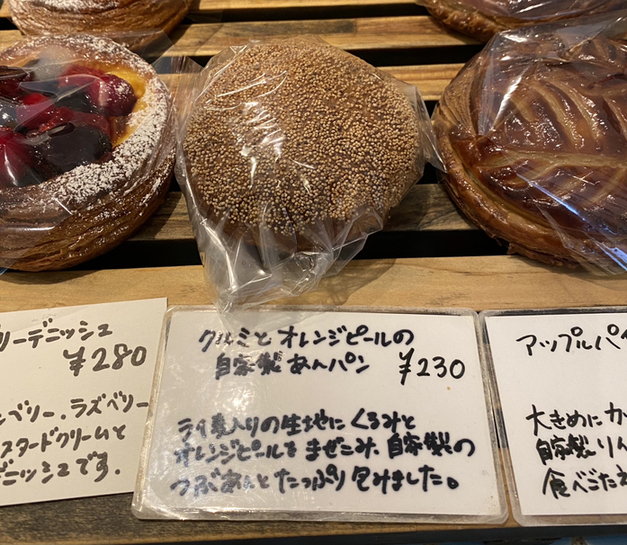 リーデニッシュ
¥280
ベリー、ラズベリー
スタードクリームと
デニッシュです。
クルミとオレンジピールの
自家製あんパン ¥230
ライ麦入りの生地にくるみと
オレンジピールをまぜこみ、自家製の
つぶあんとたっぷり包みました。
アップルパイ
大きめにカ
自家製りん
食べごたえ